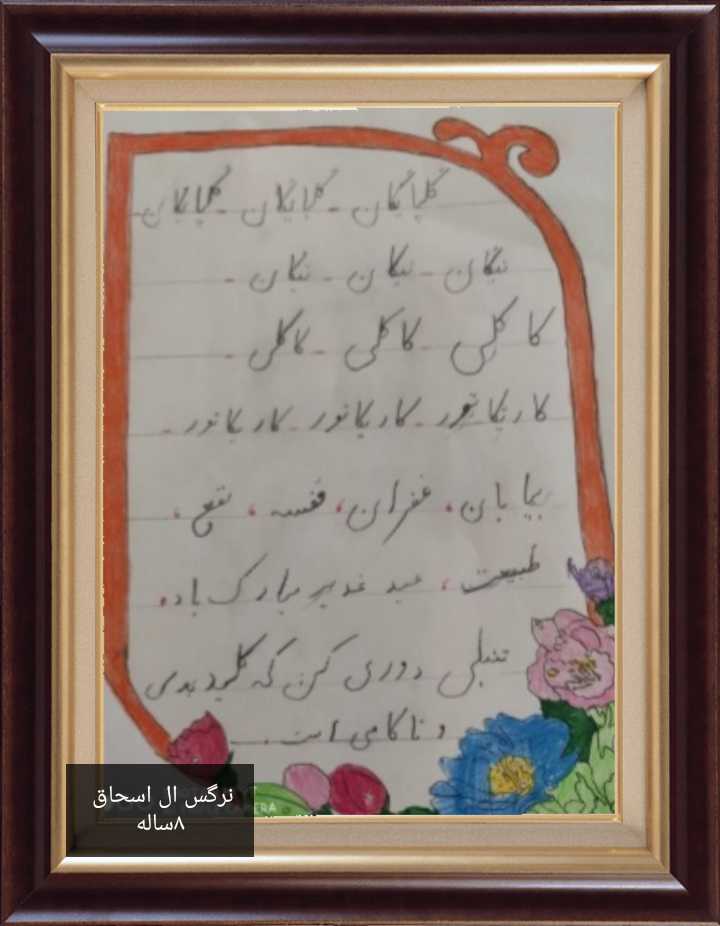 گلپایگان - گلپایگان - گلپایگان
نیکان - نیکان - نیکان -
کاکلی - کاکلی - کاکلی -
کاریکاتور - کاریکاتور - کاریکاتور -
بیابان، غفران، قفسه، نفع،
طبیعت، عید غدیر مبارک باد.
تنبلی دوری کن که کلید بدی
و ناکامی است.
نرگس ال اسحاق
۸ساله